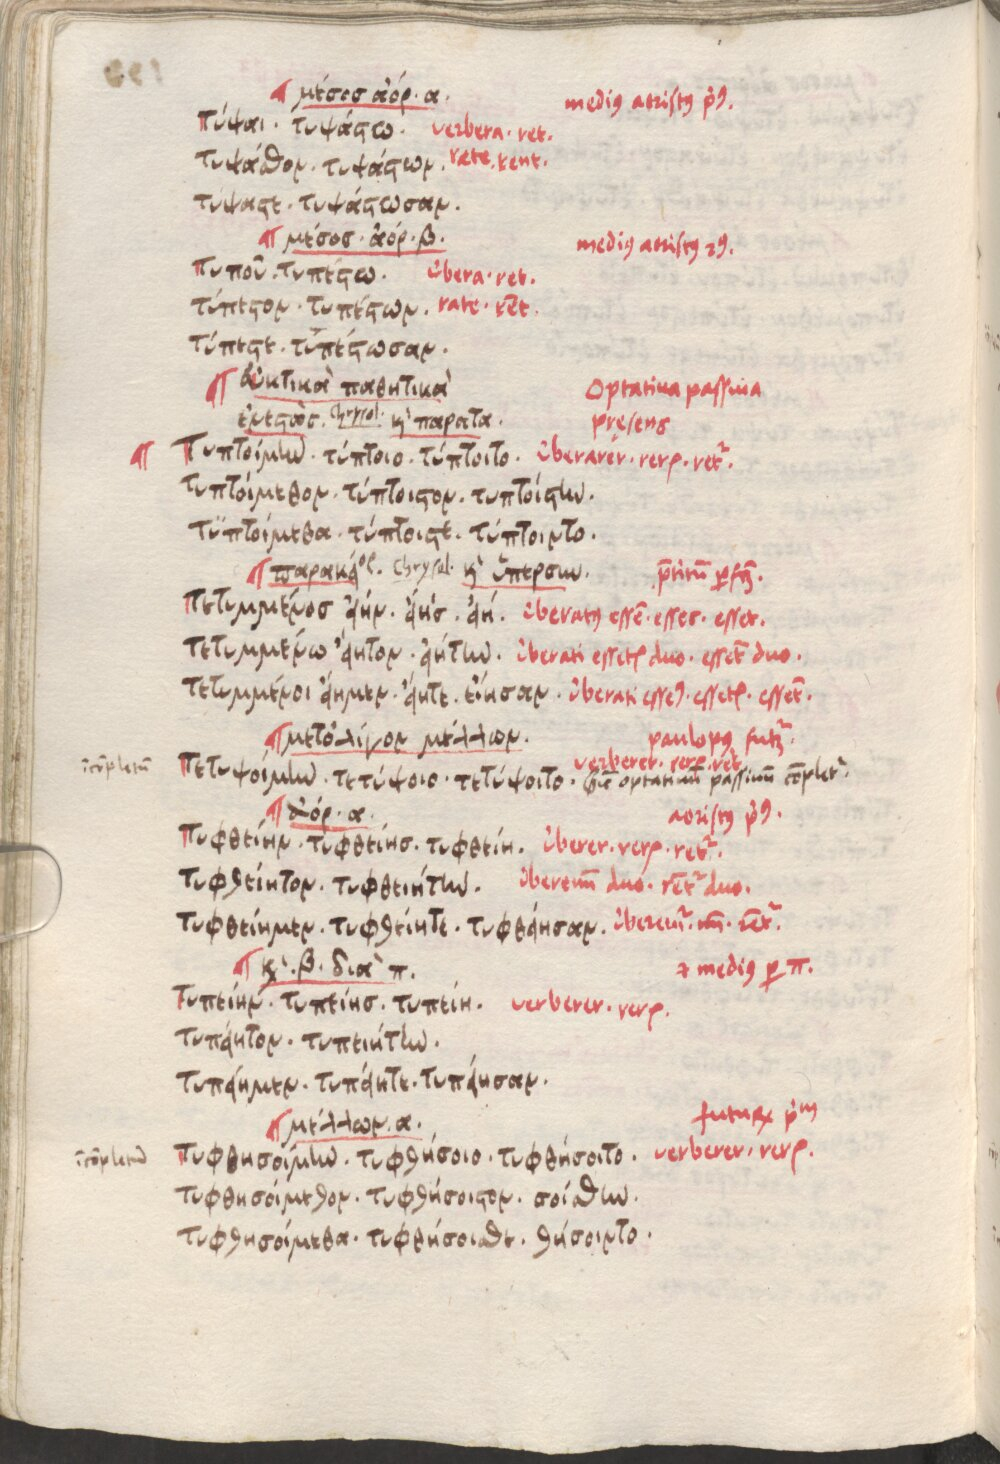 ¶ μέσοσ ἀόρ· α· mediꝰ aoristꝰ pͥꝰ.
Τύψαι · τυψάςω · verbera · ret.
τυψάσθον · τυψάςων · rate · rent.
τύψαςε · τυψάςωσαν .
¶ μέσοσ · ἀόρ · β. mediꝰ aoristꝰ 2ꝰ.
Τυποῦ · τυπέςω . ỽbera · ret.
τύπεςον · τυπέςων . rate · rēt.
τύπεςε · τυπέςωσαν .
¶ ἐυκτικὰ παθητικὰ Optatiua passiua
ἐνεςὼσ . Chrysol. κ̀ παρατα . presens
¶ Τυπτοίμην · τύπτοιο · τύπτοιτο . ỽberarer · rerꝭ · retᷣ.
τυπτοίμεθον . τύπτοιςον . τυπτοίςην .
τυπτοίμεθα . τύπτοιςε . τύπτοιντο .
¶ παρακ . Chrysol. κ̀ ὑπερσυν . p̄titū ꝑftū.
Τετυμμένοσ εἴην . εἴησ . εἴη . ỽberatꝰ essē · esses · esset .
τετυμμένω εἴητον . εἰήτην . ỽberati essetꝭ duo · essēt duo .
τετυμμένοι εἴημεν . εἴητε . εἴησαν . ỽberati essēꝰ · essetꝭ · essēt.
¶ μετολίγον μέλλων . paulopꝰ futᷣ.
verberer · rerꝭ · ret
īcōpletū Τετυψοίμην . τετύψοιο . τετύψοιτο . optatiuū passiuū cōpletᷣ.
¶ ἀόρ · α . aoristꝰ pͥꝰ .
Τυφθείην . τυφθείησ . τυφθείη . ỽberer · rerꝭ · retᷣ.
τυφθείητον . τυφθειήτην . ỽberemī duo · rētᷣ duo .
τυφθείημεν . τυφθείητε . τυφθείησαν . ỽberemᷣ · mī · rētᷣ.
¶ κ̀ . β . διὰ π . ⁊ mediꝰ ꝑ π .
Τυπείην . τυπείησ . τυπείη . verberer · rerꝭ .
τυπείητον . τυπειήτην .
τυπείημεν . τυπείητε . τυπείησαν .
¶ μέλλων . α . futuꝝ pͥm
īcōpletū Τυφθησοίμην . τυφθήσοιο . τυφθήσοιτο . verberer · rerꝭ .
τυφθησοίμεθον . τυφθήσοιςον . σοίσθην .
τυφθησοίμεθα . τυφθήσοισθε . θήσοιντο .